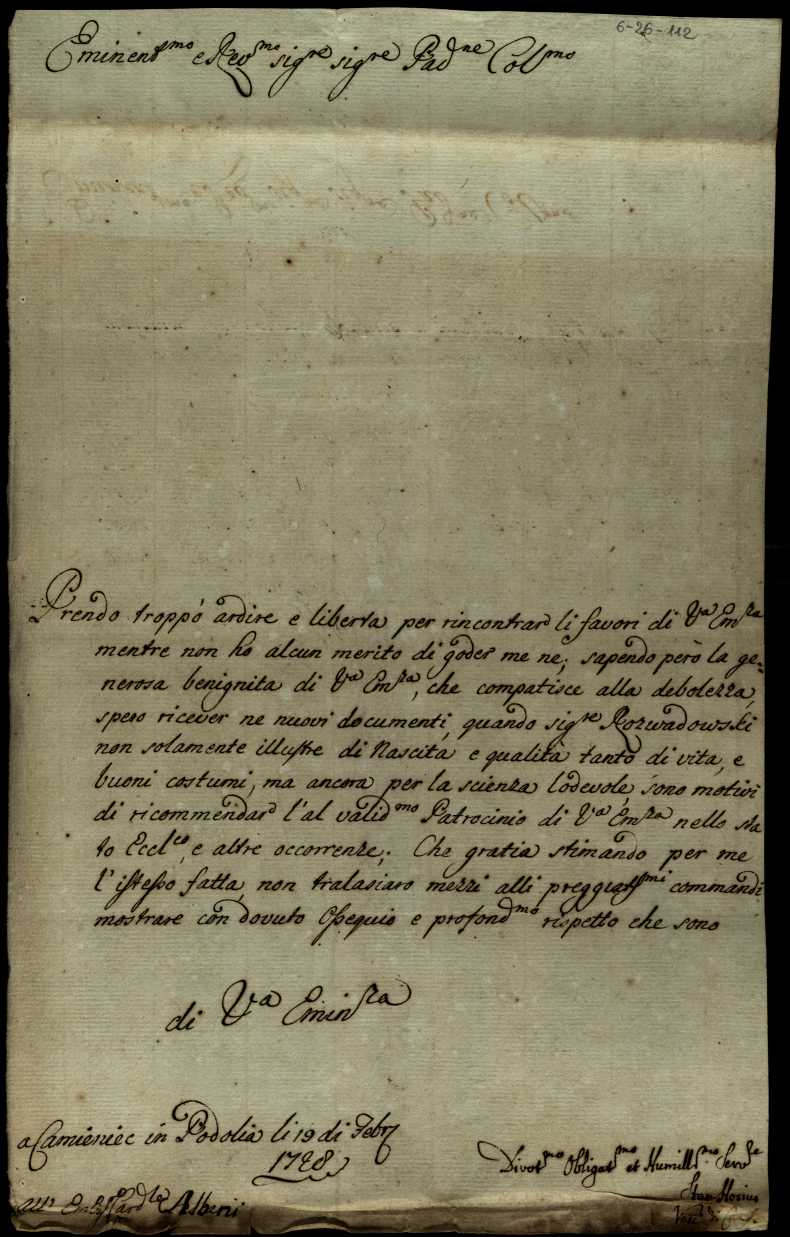 6-26-112
Eminent^mo e Rev^mo sig^re sig^re Pad^ne Col^mo
Prendo troppo ardire e liberta per rincontrar li favori di V^a Em^za
mentre non ho alcun merito di goder me ne; sapendo però la ge=
nerosa benignita di V^a Em^za, che compatisce alla debolezza,
spero ricever ne nuovi documenti, quando sig^re Rozwadowski
non solamente illustre di Nascita e qualità tanto di vita, e
buoni costumi, ma ancora per la scienza lodevole, sono motivi
di ricommendar l'al valid^mo Patrocinio di V^a Em^za nello sta
to Eccl^co, e altre occorrenze; Che gratia stimando per me
l'istesso fatta, non tralasiaro mezzi alli preggiatss^mi commandi
mostrare con dovuto Ossequio e profond^mo rispetto che sono
di V^a Emin^za
a Camieniec in Podolia li 19 di Febr
1728
Divot^mo Obligat^mo et Humill^mo Serv^re
Stan Hosius
Vesc^o di
all' Em Card^le Albani